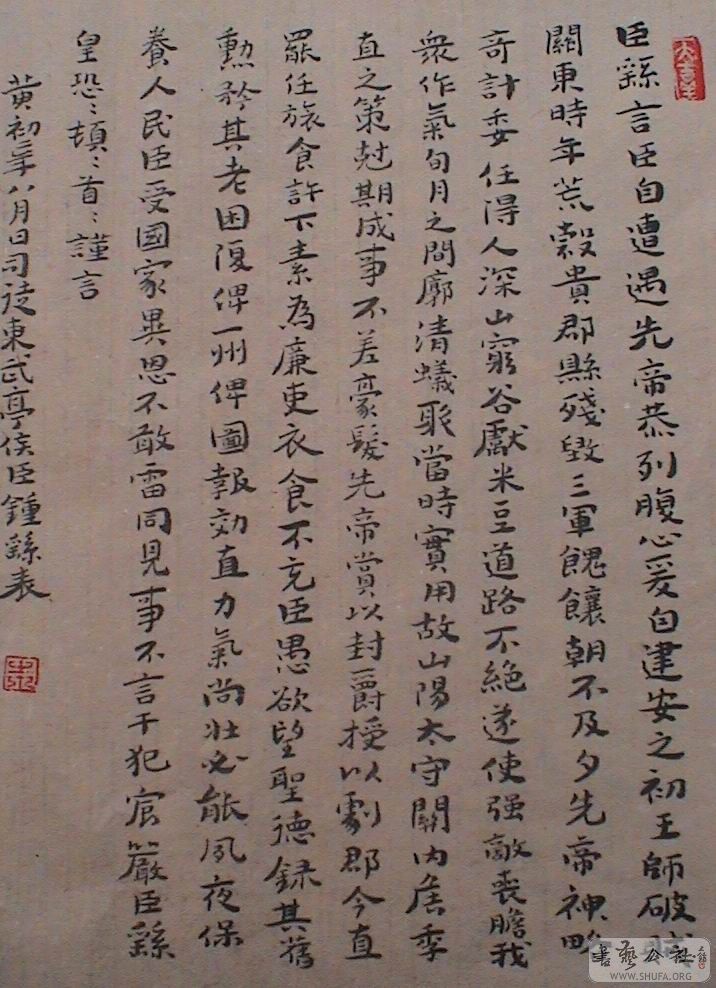 臣繇言臣自遭遇先帝恭列腹心爰自建安之初王師破
關東時年荒穀貴郡縣殘毀三軍餽饟朝不及夕先帝神略
奇計委任得人深山窮谷獻米豆道路不絕遂使强敵喪膽我
衆作氣旬月之間廓清蟻聚當時實用故山陽太守關内侯季
直之策尅期成事不差豪髮先帝賞以封爵授以劇郡今直
罷任旅食許下素為廉吏衣食不充臣愚欲望聖德錄其舊
勳矜其老困復俾一州俾圖報効直力氣尚壯必能夙夜保
養人民臣受國家異恩不敢雷同見事不言干犯宸嚴臣繇
皇恐〻頓〻首〻謹言
黃初二年八月日司徒東武亭侯臣鍾繇表
書藝公社
WWW.SHUFA.ORG